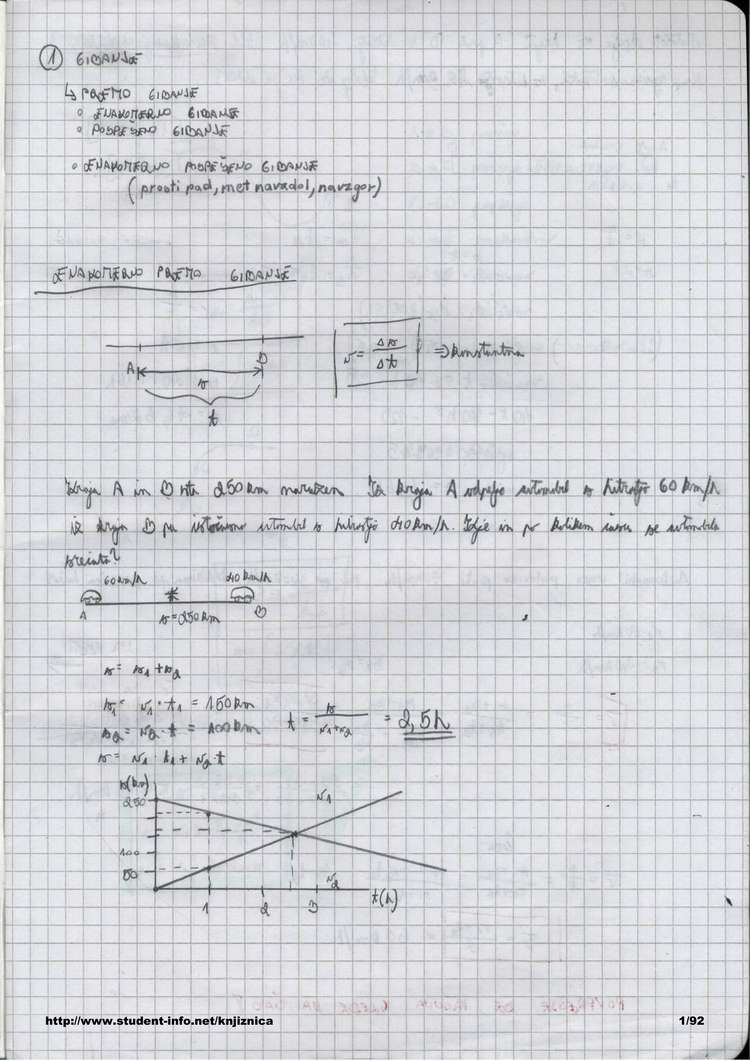 1 GIBANJE
↳ PREMO GIBANJE
• ENAKOMERNO GIBANJE
• POSPEŠENO GIBANJE
• ENAKOMERNO POSPEŠENO GIBANJE
(prosti pad, met navzdol, navzgor)
ENAKOMERNO PREMO GIBANJE
v = Δs/Δt ⇒ konstantna
A B
s
t
Kraja A in B sta 250 km narazen. Iz kraja A odpelje avtomobil s hitrostjo 60 km/h
iz kraja B pa istočasno avtomobil s hitrostjo 40 km/h. Kje in po kolikem času se avtomobila
srečata?
60 km/h 40 km/h
A s = 250 km B
s = s1 + s2
s1 = v1 · t1 = 150 km
s2 = v2 · t = 100 km t = s/(v1+v2) = 2,5 h
s = v1 · t1 + v2 · t
s(km)
250
v1
100
50
v2
1 2 3 t(h)
http://www.student-info.net/knjiznica 1/92